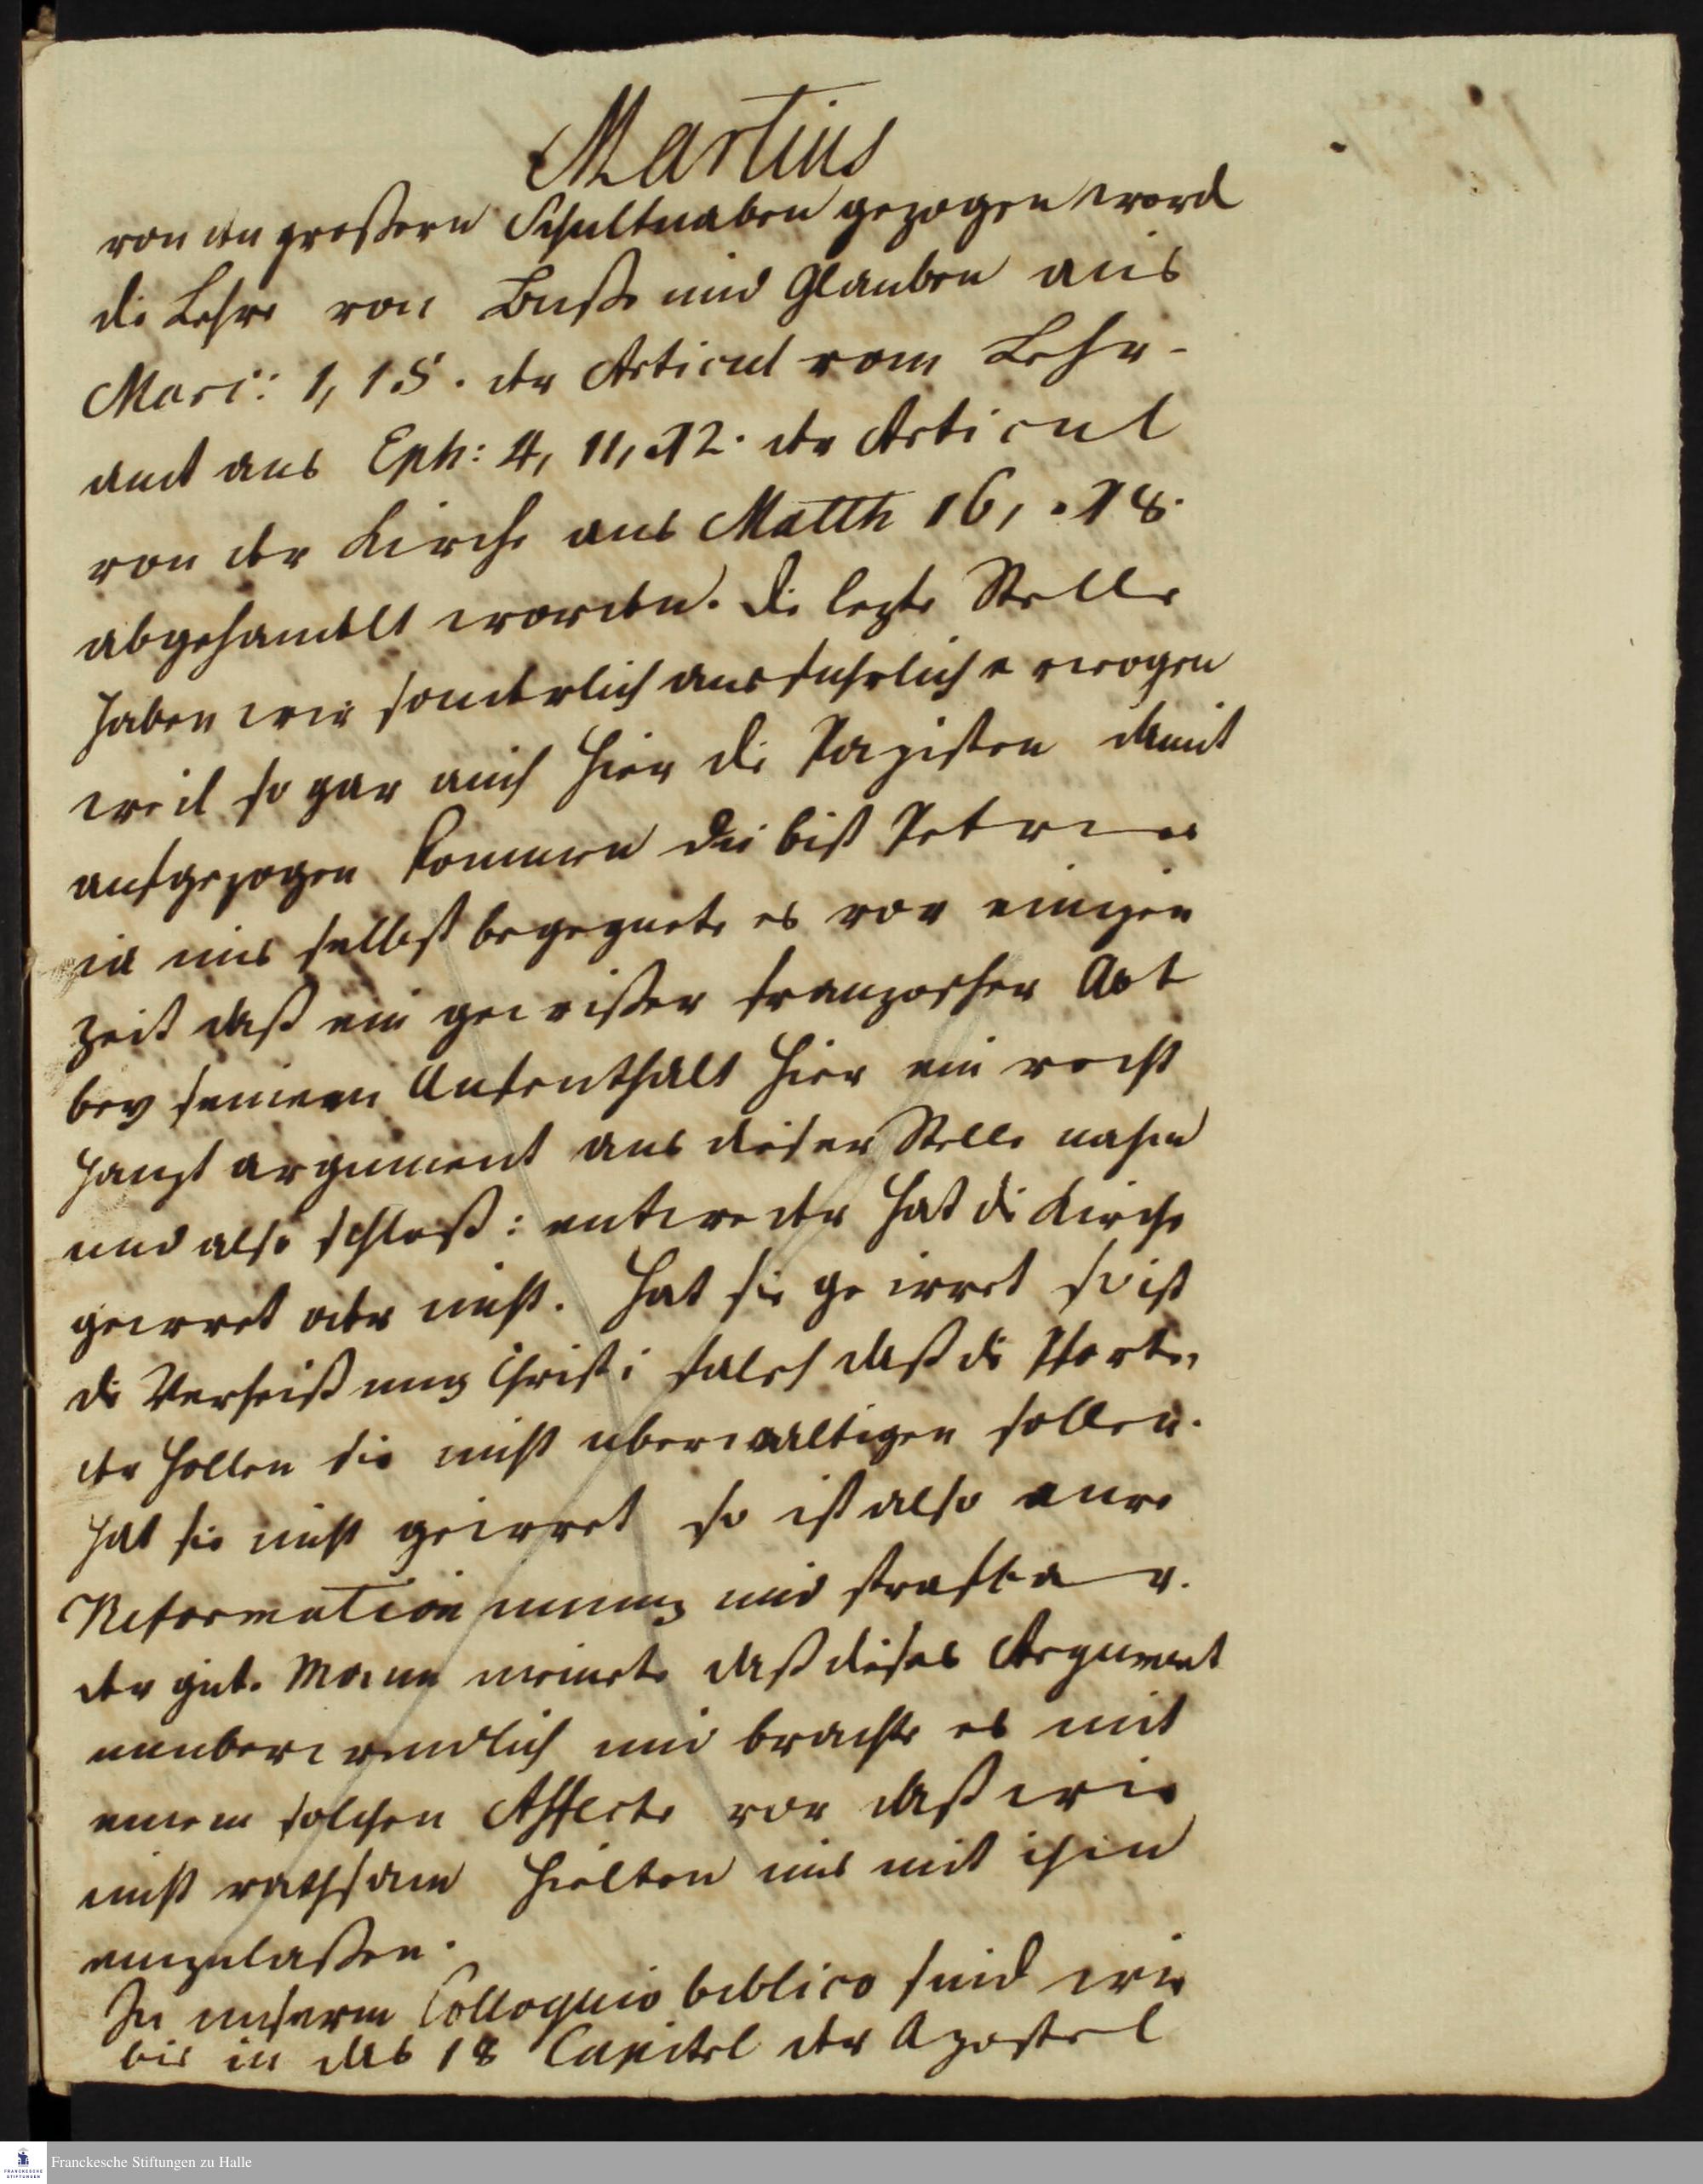 Martius
von den großern Schultnaben gezogen word
die Lehre von Buße und Glauben aus
Marc: 1, 15. der Articul vom Lehr-
amt aus Eph: 4, 11, 12. der Articul
von der Kirche aus Matth 16, 18.
abgehandelt worden. die lezte Stelle
haben wir sonderlich ausfuhrlich erwogen
weil so gar auch hier die Papisten damit
aufgezogen kommen du bist Petrus
ia uns selbst begegnete es vor einiger
Zeit daß ein gewißer franzoscher Abt
bey seinem Aufenthalt hier ein recht
haupt argument aus dieser Stelle nahm
und also schloß: entweder hat die Kirche
geirret oder nicht. hat sie geirret so ist
die Verheißung Christi falsch daß die Pforten
der hollen sie nicht uberwaltigen sollen.
hat sie nicht geirret so ist also eure
Reformation unnuz und strafbar.
der gute Mann meinete daß dieses Argument
unuberwindlich und brachte es mit
einem solchen Affecte vor daß wir
nicht rathsam hielten uns mit ihm
einzulaßen.
In unserm Colloquio biblico sind wir
bis in das 18 Capitel der Apostel
Franckesche Stiftungen zu Halle